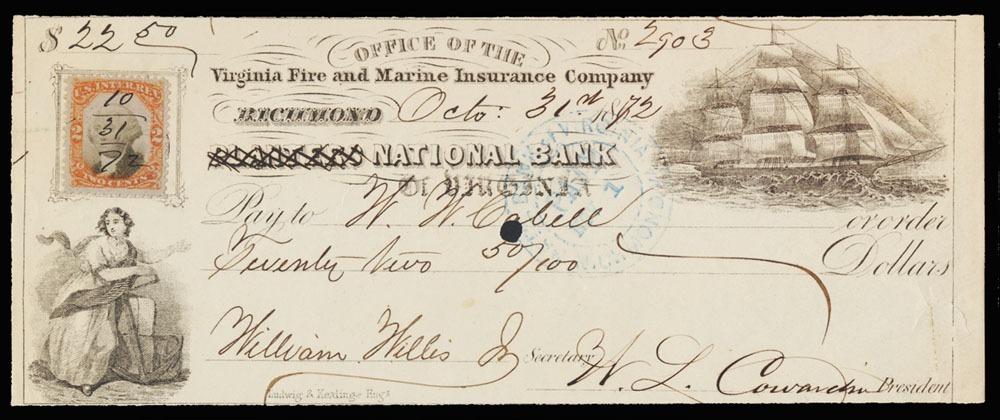 $ 22 50
No. 2903
OFFICE OF THE
Virginia Fire and Marine Insurance Company
RICHMOND Octo: 31st 1872
PLANTERS NATIONAL BANK
OF VIRGINIA
Pay to W. W. Cabell or order
Twenty two 50/100 Dollars
William Willis Jr Secretary W. L. Cowardin President
Ludwig & Keatinge Engs
U.S. INTER. REV.
10
31
72
TWO CENTS